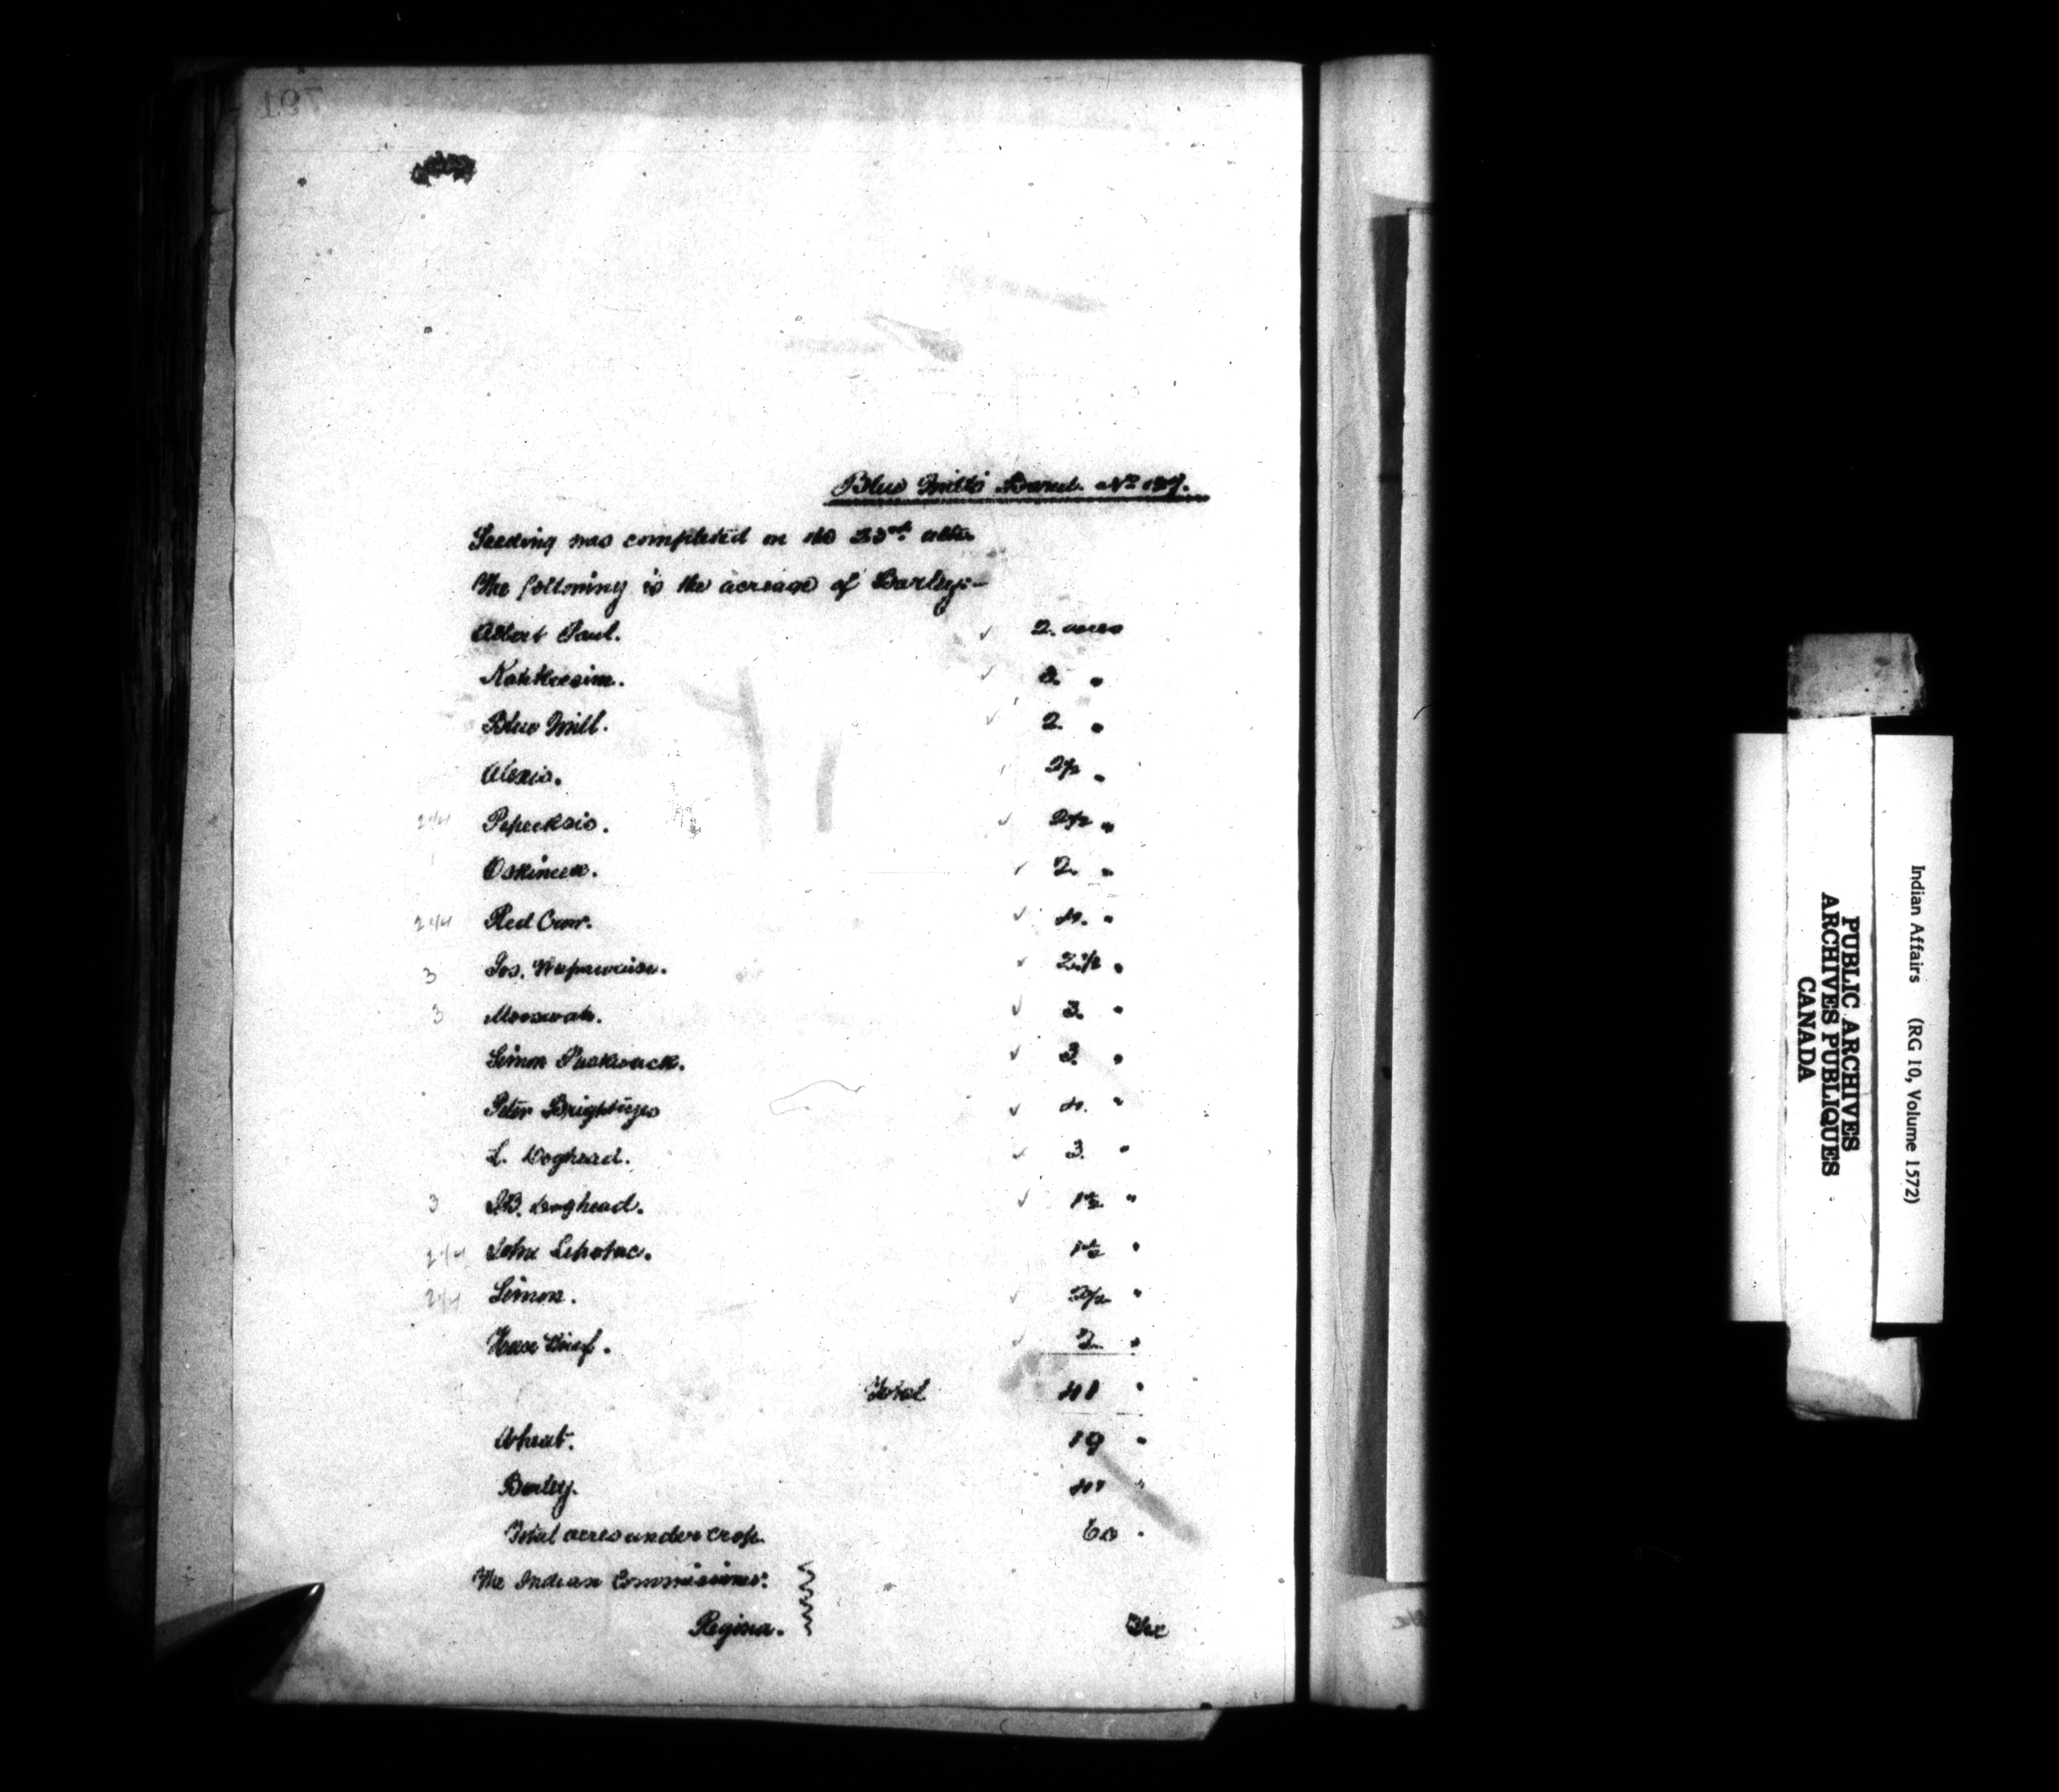 791
Blue Quill's Band. No. 127.
Seeding was completed on the 23rd ulto.
The following is the acreage of Barley:-
Albert Paul. ✓ 2. acres
✓ 3. "
Blue Quill. ✓ 2. "
Alexis. 2½ "
2 1/4 Pepeeksis. ✓ 2½ "
✓ 2. "
2 1/4 Red Crow. ✓ 4. "
3 Jos. ✓ 2½ "
3 Mooswah. ✓ 3. "
Simon ✓ 3. "
Peter Brighteyes ✓ 4. "
L. Doghead. ✓ 3. "
3 J.B. Doghead. ✓ 1½ "
2 1/4 John 1½ "
2 1/4 Simon. ✓ 2½ "
✓ 2. "
Total 41 "
Wheat. 19 "
Barley. 41 "
Total acres under crop. 60 "
The Indian Commissioner.
Regina. The
Indian Affairs (RG 10, Volume 1572)
PUBLIC ARCHIVES
ARCHIVES PUBLIQUES
CANADA